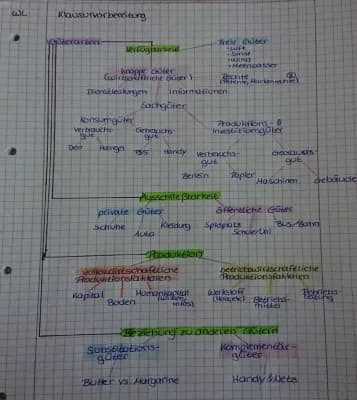 WL Klausurvorbereitung
Güterarten
Verfügbarkeit
freie Güter
- Luft
- Sand
- Wind
- Meerwasser
knappe Güter
(wirtschaftliche Güter)
Rechte
(Patente, Markenrechte)
Dienstleistungen Informationen
Sachgüter
Konsumgüter
Produktions- &
Investitionsgüter
Verbrauchs-
gut
Gebrauchs-
gut
Verbrauchs-
gut
Gebrauchs-
gut
Deo Handy
Benzin Papier
Maschinen Gebäude
Ausschließbarkeit
private Güter öffentliche Güter
Schuhe Auto Kleidung Spielplatz Schule/Uni Bus/Bahn
Produktion
volkswirtschaftliche
Produktionsfaktoren
betriebswirtschaftliche
Produktionsfaktoren
Kapital Boden Humankapital
Werkstoff
Betriebs-
mittel
Beziehung zu anderen Gütern
Substitutions-
güter
Komplementär-
güter
Butter vs. Margarine Handy & Netz